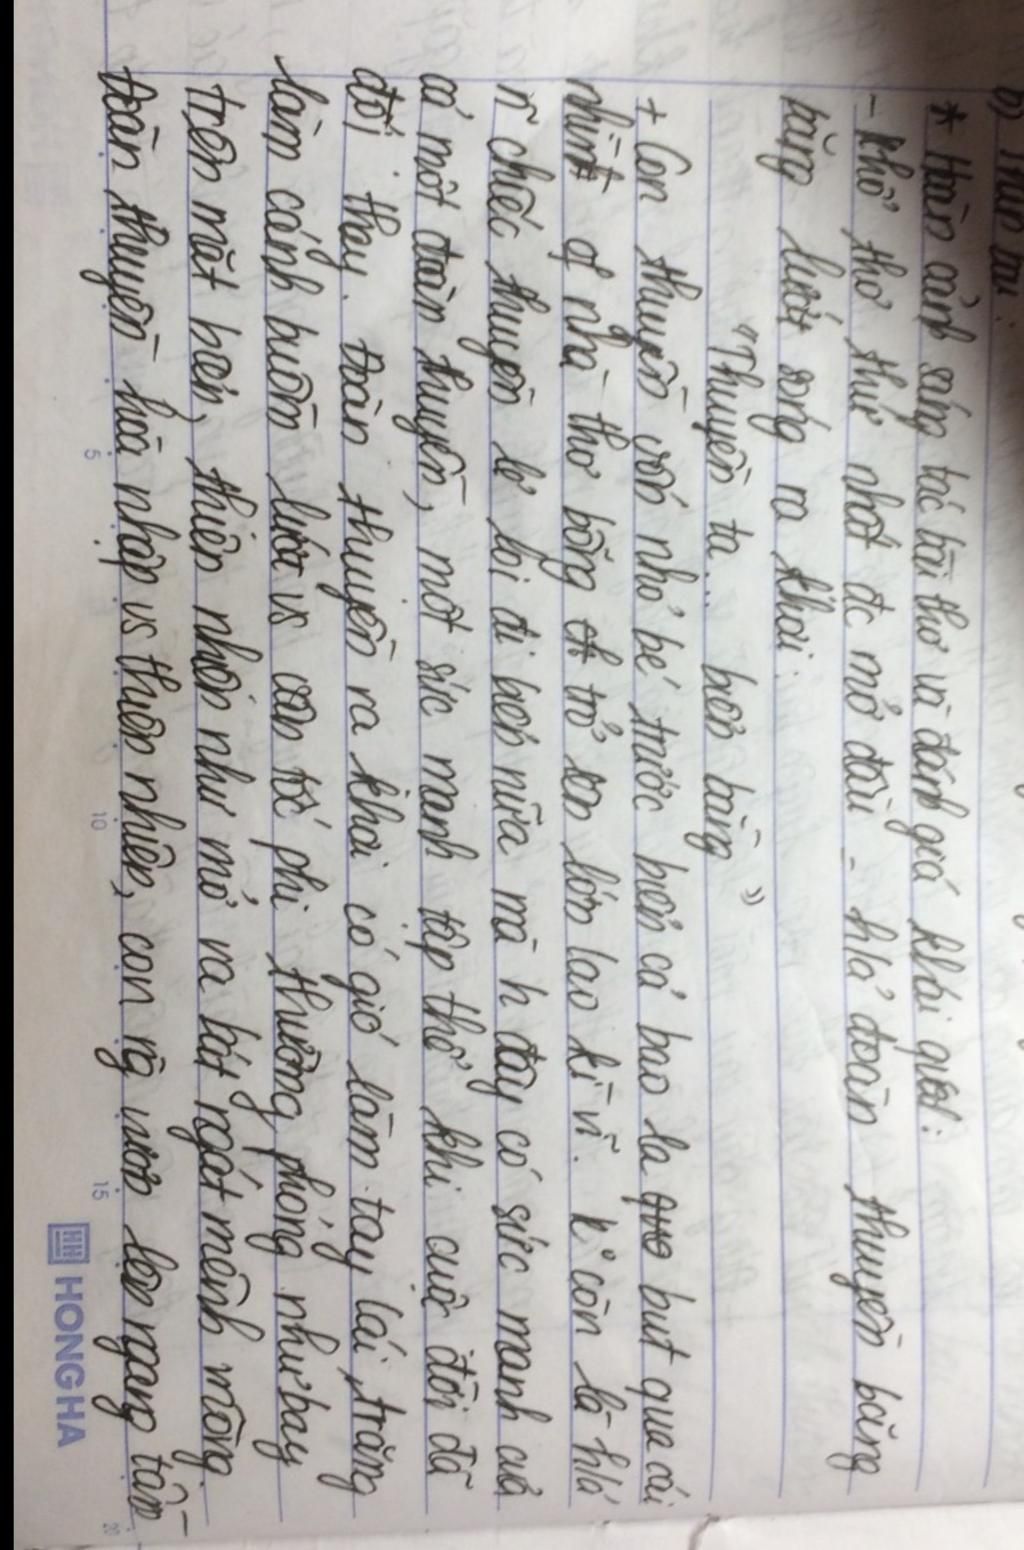 b) Thân bài:
* Hoàn cảnh sáng tác bài thơ và đánh giá khái quát:
- Khổ thơ thứ nhất đc mở đầu - h/a' đoàn thuyền băng
băng lướt sóng ra khơi:
"Thuyền ta... biển bằng"
+ Con thuyền vốn nhỏ bé trước biển cả bao la but qua cái
nhìn of nhà thơ bỗng trở lên lớn lao kì vĩ. k° còn là h/a'
~ chiếc thuyền lẻ loi đi biển nữa mà h đây có sức mạnh cả
có một đoàn thuyền, một sức mạnh tập thể khi cuộc đời đã
đổi thay. Đoàn thuyền ra khơi có gió làm tay lái, trăng
làm cánh buồm lướt vs vận tốc phi thường phóng như bay
trên mặt biển, thiên nhiên như mở ra bát ngát mênh mông.
Đoàn thuyền hòa nhập vs thiên nhiên, con ng vươn lên ngang tầm
5
10
15
20
HONG HA